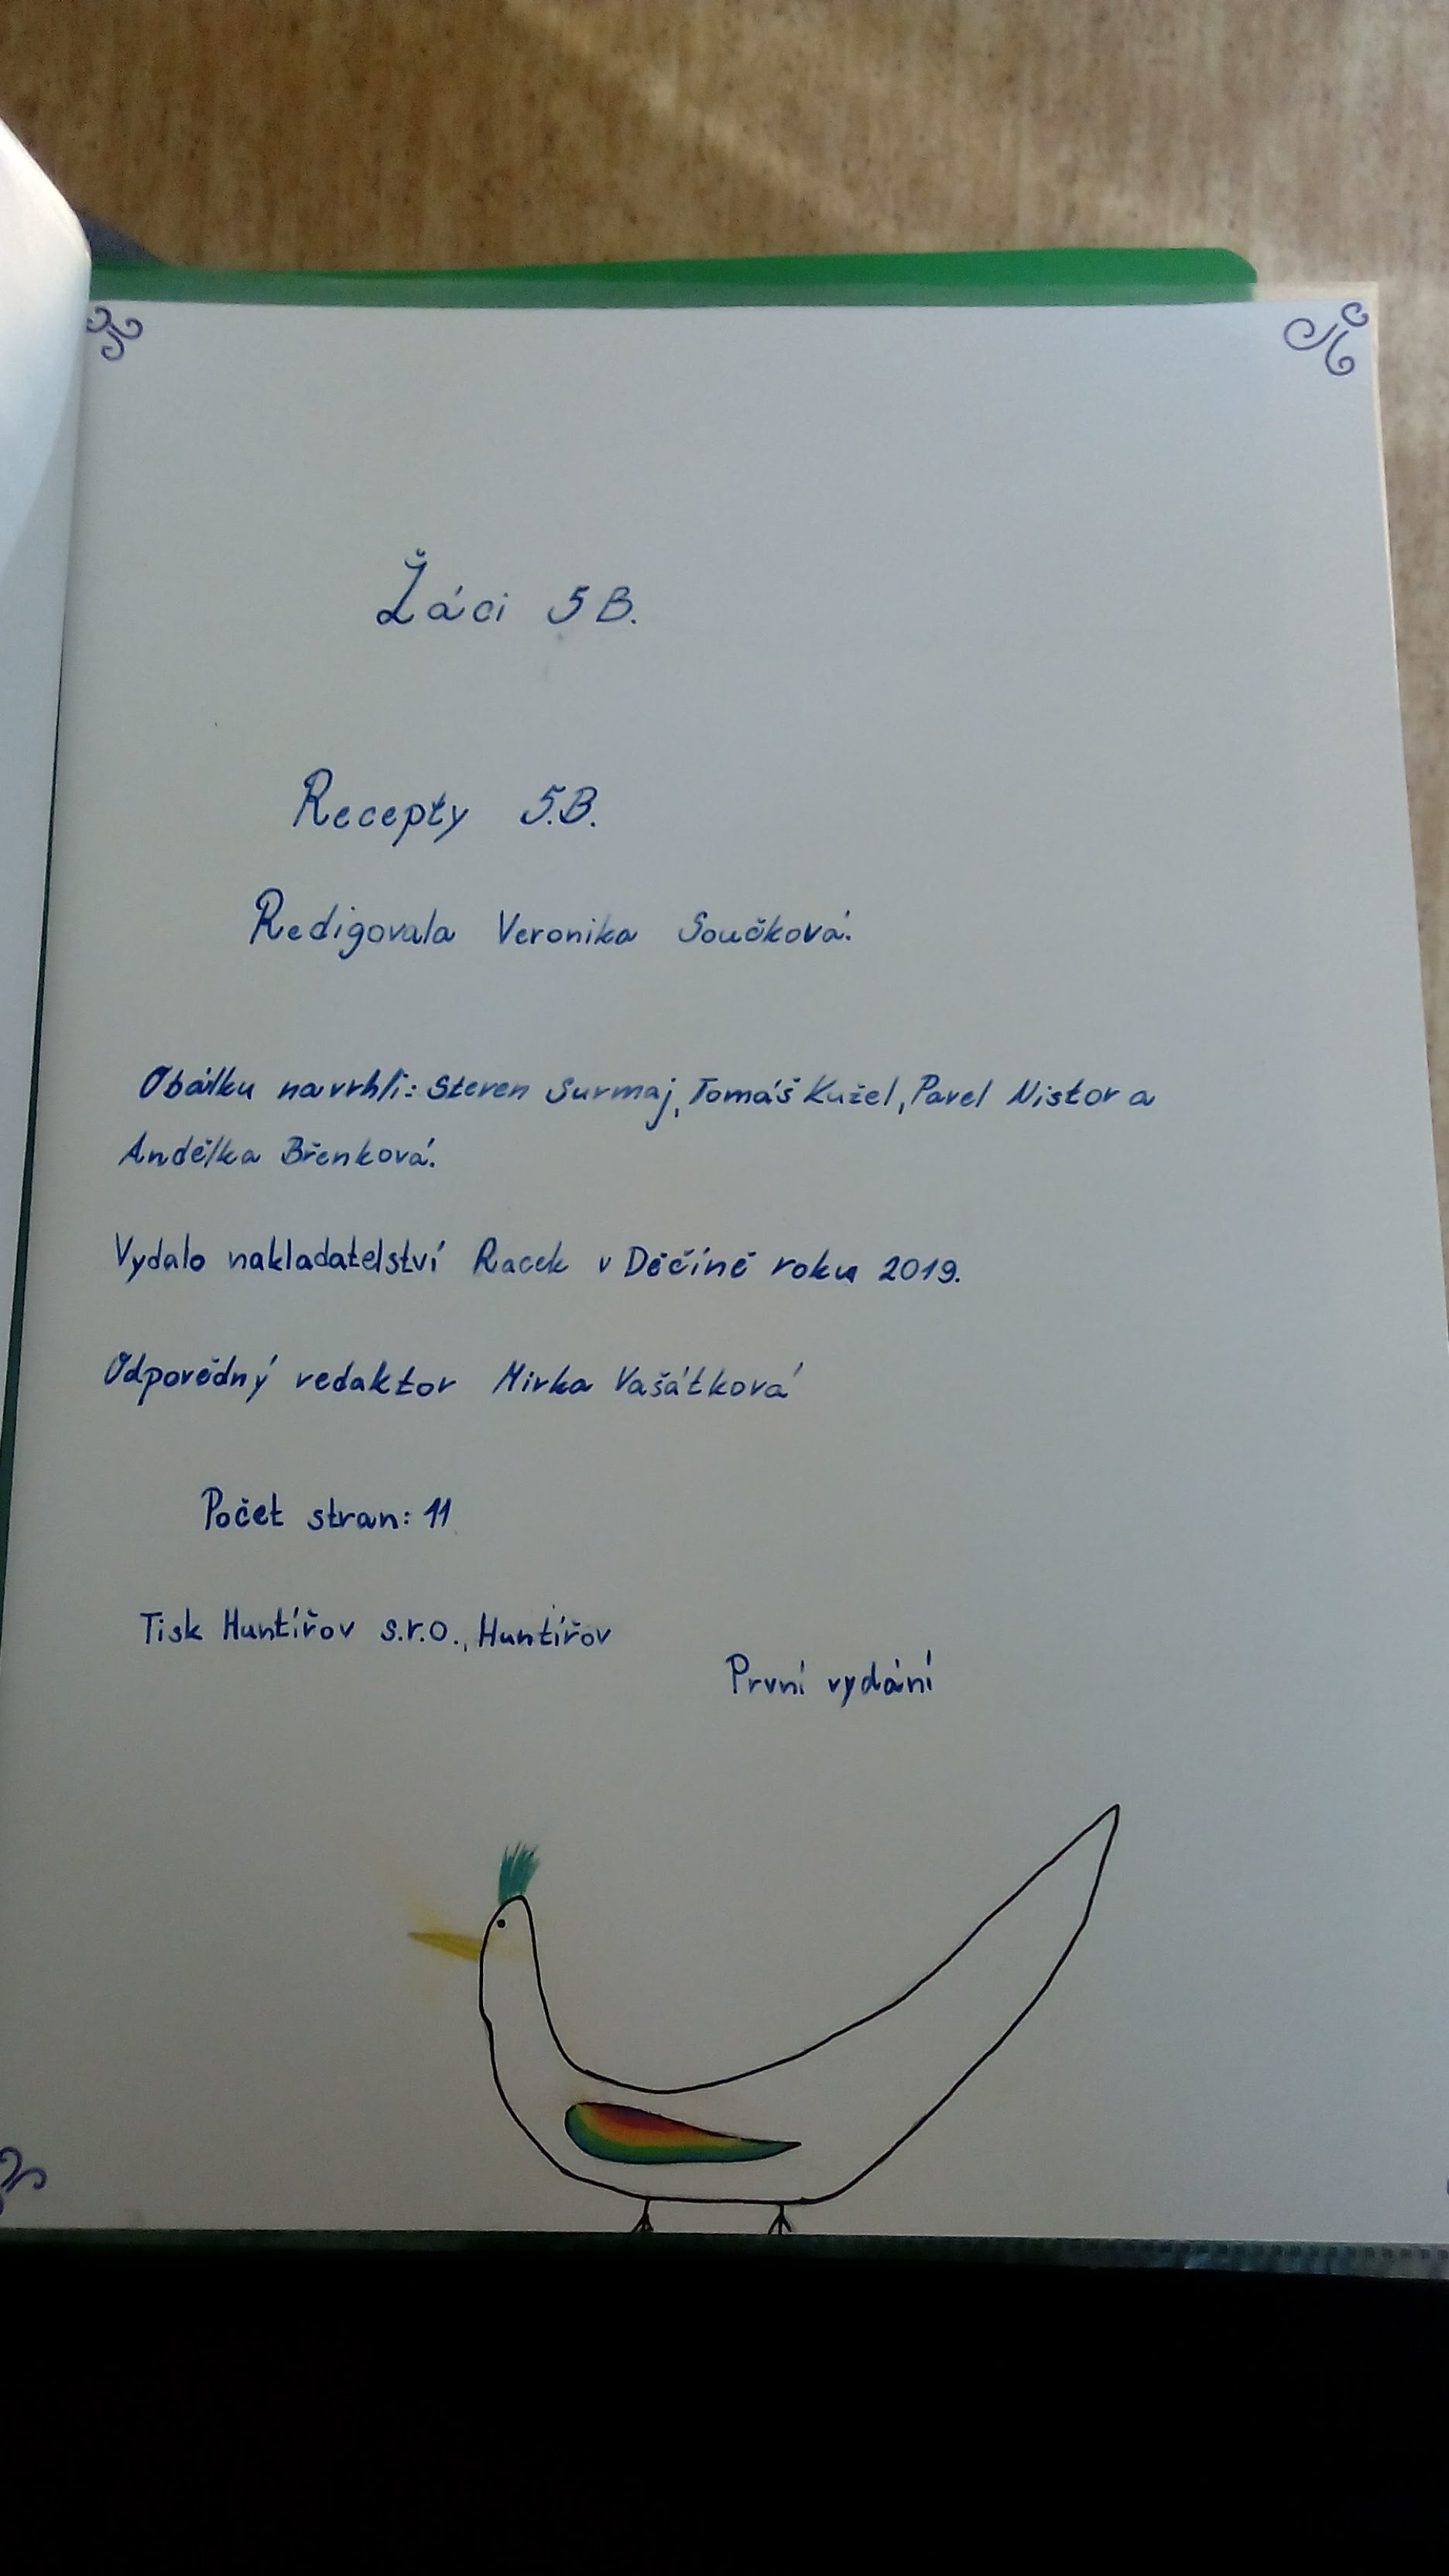 Žáci 5B.
Recepty 5.B.
Redigovala Veronika Součková.
Obálku navrhli: Steven Surmaj, Tomáš Kužel, Pavel Nistor a
Andělka Břenková.
Vydalo nakladatelství Racek v Děčíně roku 2019.
Odpovědný redaktor Mirka Vašátková
Počet stran: 11
Tisk Huntířov s.r.o., Huntířov
První vydání